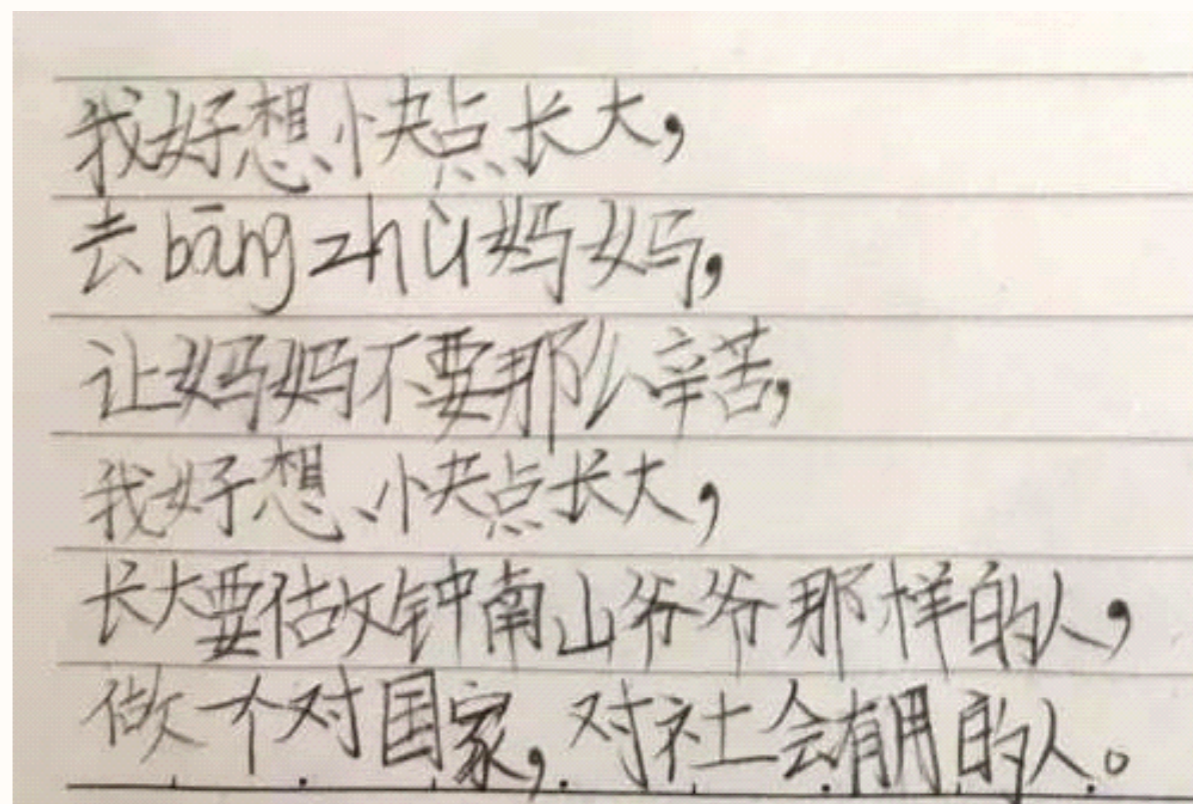 我好想快点长大，
去bāng zhù妈妈，
让妈妈不要那么辛苦，
我好想快点长大，
长大要做钟南山爷爷那样的人，
做一个对国家，对社会有用的人。